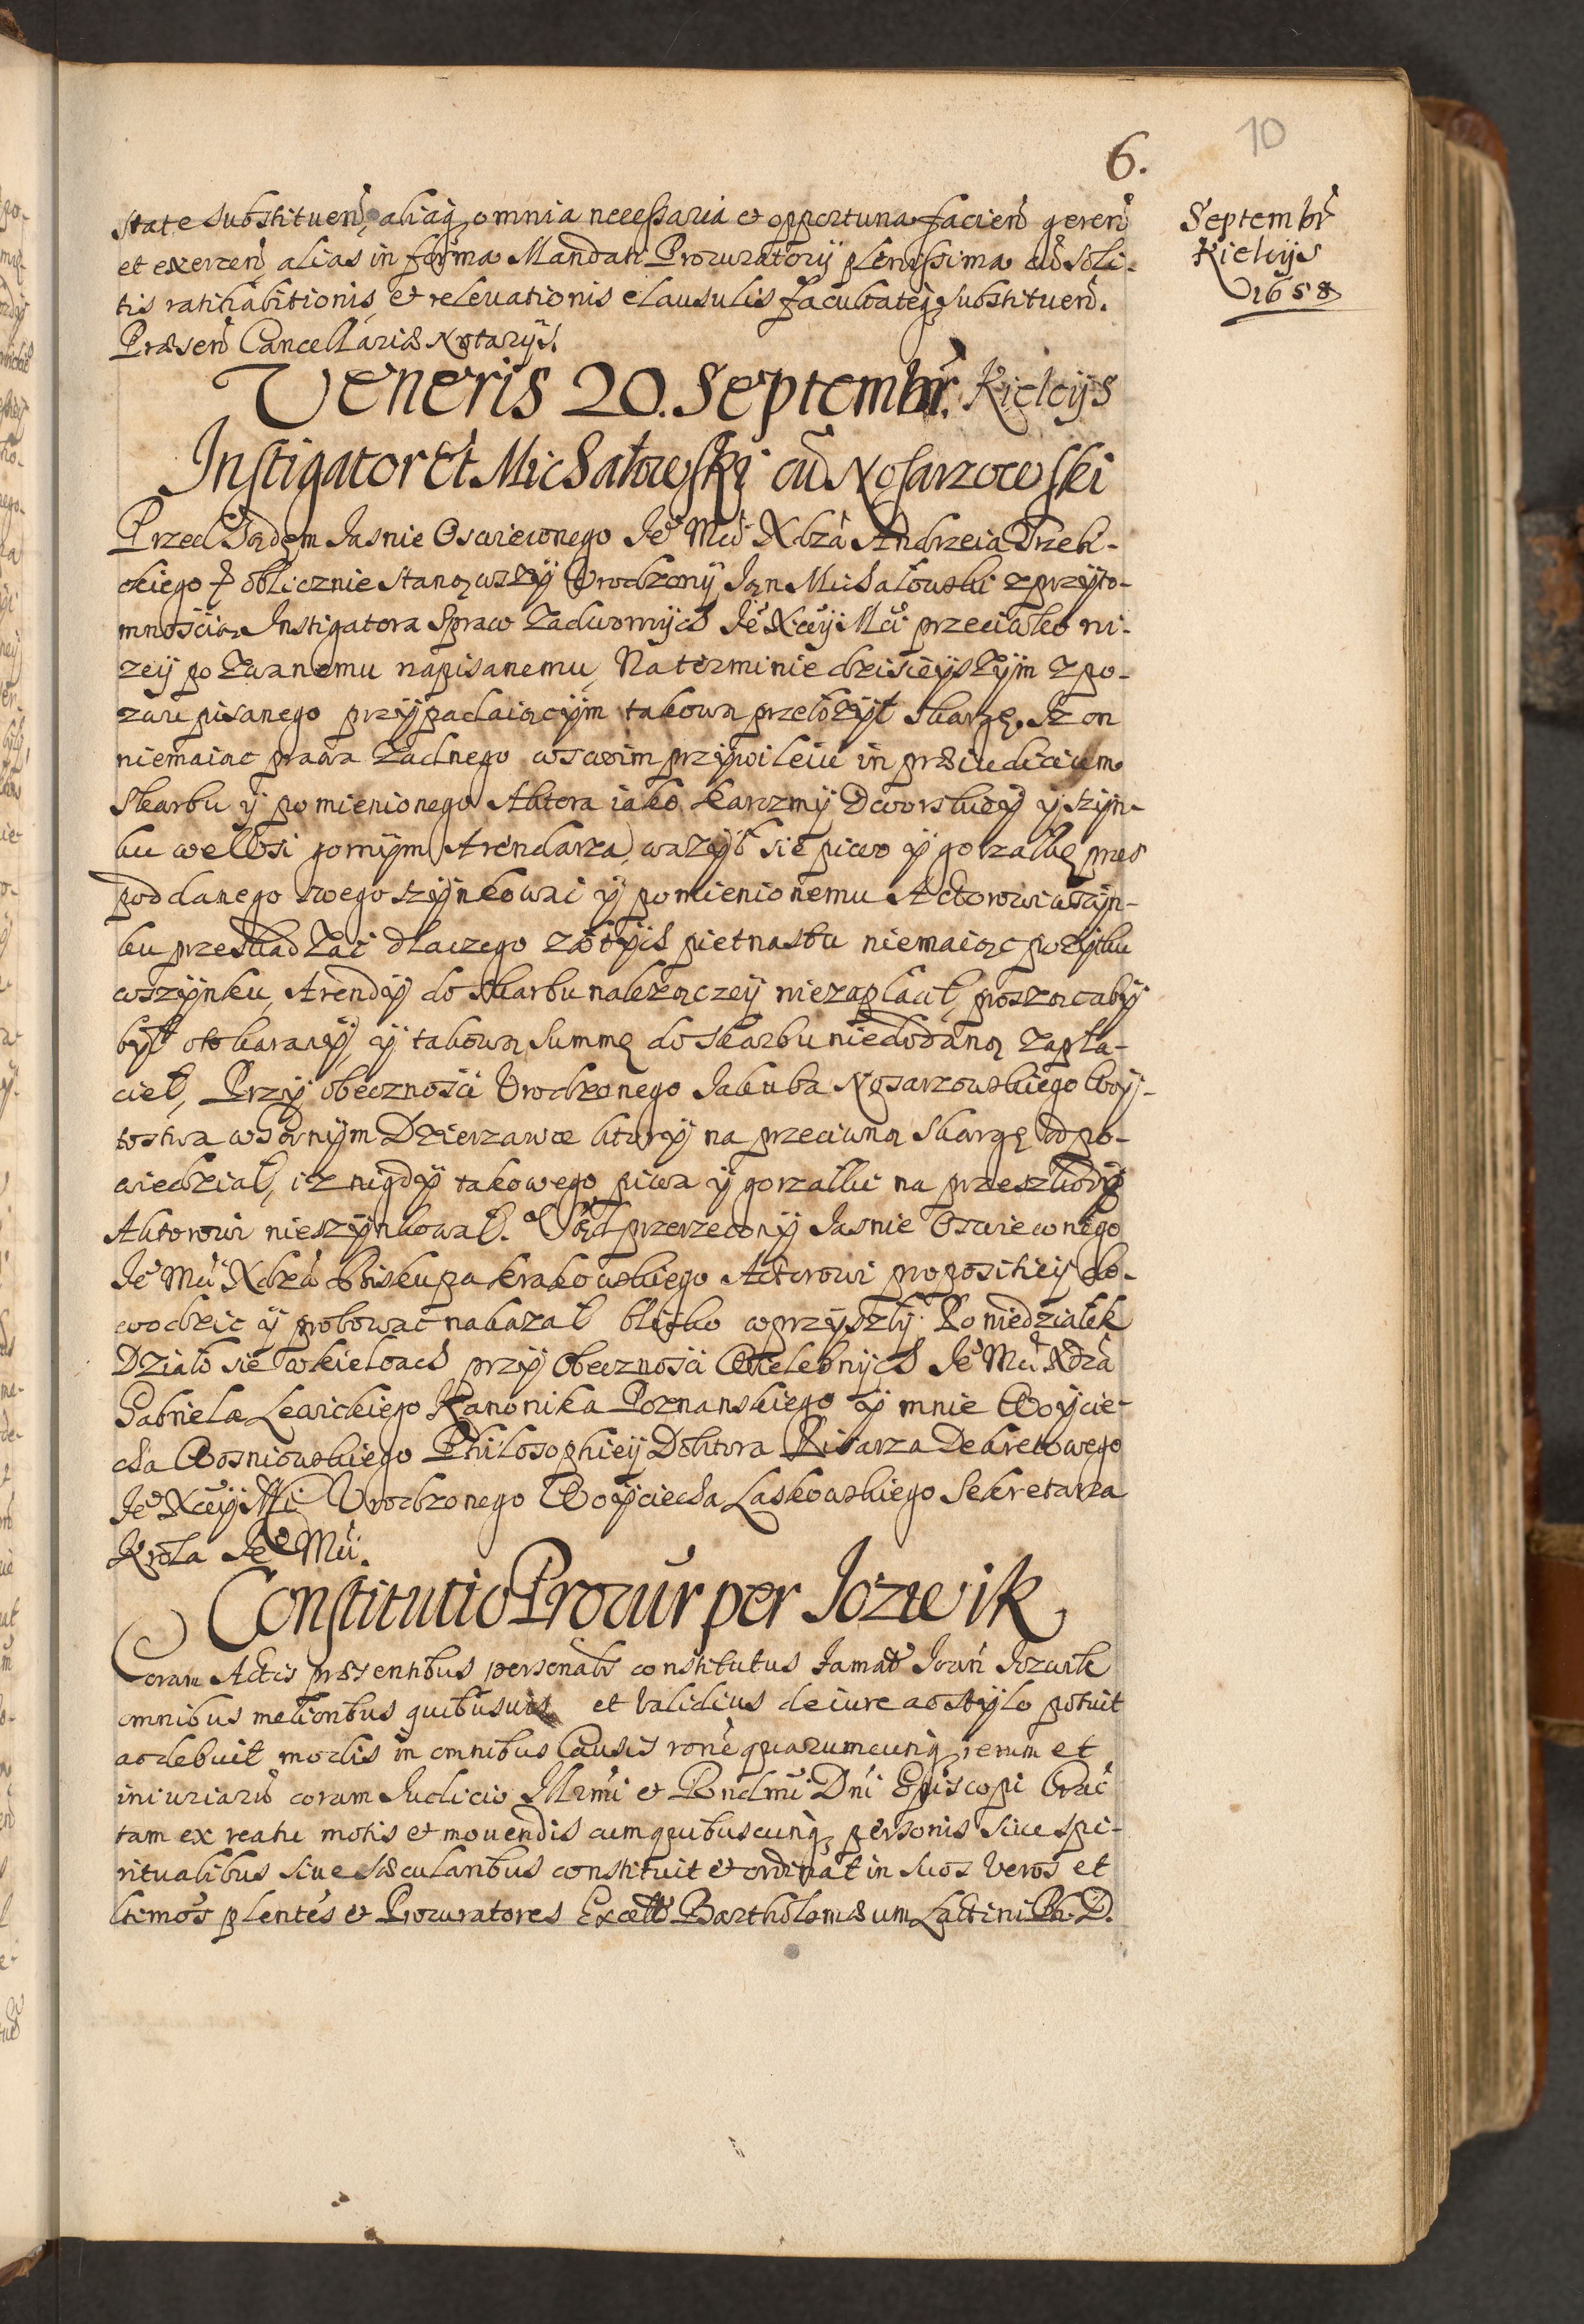 6.
10
Septembr̃
Kielcijs
1658
state substituend, aliaq̨ omnia necessaria et opportuna faciend gerend
et exercend alias in forma Mandati Procuratorij plenissima cũ soli-
tis ratihabitionis et releuationis clausulis facultateq̨ substituend.
Præsend Cancellariæ Notarijs.
Veneris 20. Septembr. Kielcijs
Instigator Et Michałowski cũ Nosarzowski
Przed Sądęm Jasnie Oswieconego Je Mci Xdza Andrzeia Trzeb-
ckiego oblicznie stanąwszÿ Vrodzonÿ Jąn Michałowski z przÿto-
mnoscią Instigatora Spraw Zadwornÿch Je Xcÿ Mci przeciwko ni-
zeÿ pozwanemu napisanemu, Na terminie dzisieÿszÿm z po-
zwu pisanego przÿpadaiącÿm takową przełozÿł skargę. Iz on
niemaiac prawa zadnego w swoim przÿwileiu in præiudicium
Skarbu ÿ pomienionego Aktora iako karczmÿ Dworskieÿ ÿ szÿn-
ku we Wsi gornÿm Arendarza, wazÿł sie piwo ÿ gorzałkę przes
poddanego swego szÿnkowac ÿ pomienionemu Actorowi w szÿn-
ku przeskadzac dlaczego złotÿch pietnastu niemaiąc pozÿtku
w szÿnku, Arendÿ do skarbu nalezączeÿ niezapłacił, prosząc abÿ
bÿł oto karanÿ, ÿ takową summę do skarbu niedodaną zapła-
cieł, Przÿ obecznosci Vrodzonego Jakuba Nosarzowskiego Woÿ-
tostwa w Dzierzawce kturÿ na przeciwną skargę odpo-
wiedział, iz nigdÿ takowego piwa ÿ gorzałki na przeszkodÿ
Aktorowi nieszÿnkował. Sąd przerzeconÿ Jasnie Oswieconego
Je Mci Xdza Biskupa krakowskiego Actorowi propositieÿ do-
wodzic ÿ probowac nakazał blisko w przÿszłÿ Poniedziałek
Działo sie w kielcach przÿ obecznosci Wielebnÿch Je Mci Xdza
Gabriela Lewickiego Kanonika Poznanskiego ÿ mnie Woÿcie-
cha Wosniowskiego Philosophieÿ Doktora Pisarza Dekretowego
Je Xcÿ Mci Vrodzonego Woÿciecha Laskowskiego Sekretarza
Krola Je Mci.
Constitutio Procur per Jozwik
Coram Actis præsentibus personalr constitutus Famat Joan Jozwik
omnibus melioribus quibusuis et validius de iure ac stÿlo potuit
ac debuit modis in omnibus Causis rone quarumcunq̨ rerum et
iniuriarũ coram Iudicio Illrmi et Rndmi Dni Episcopi Crac
tam ex reatu motis et mouendis cum quibuscunq̨ personis siue spi-
ritualibus siue sæcularibus constituit et ordinat in suos veros et
ltemos plentes et Procuratores Excell Bartholomæum Ph. D.